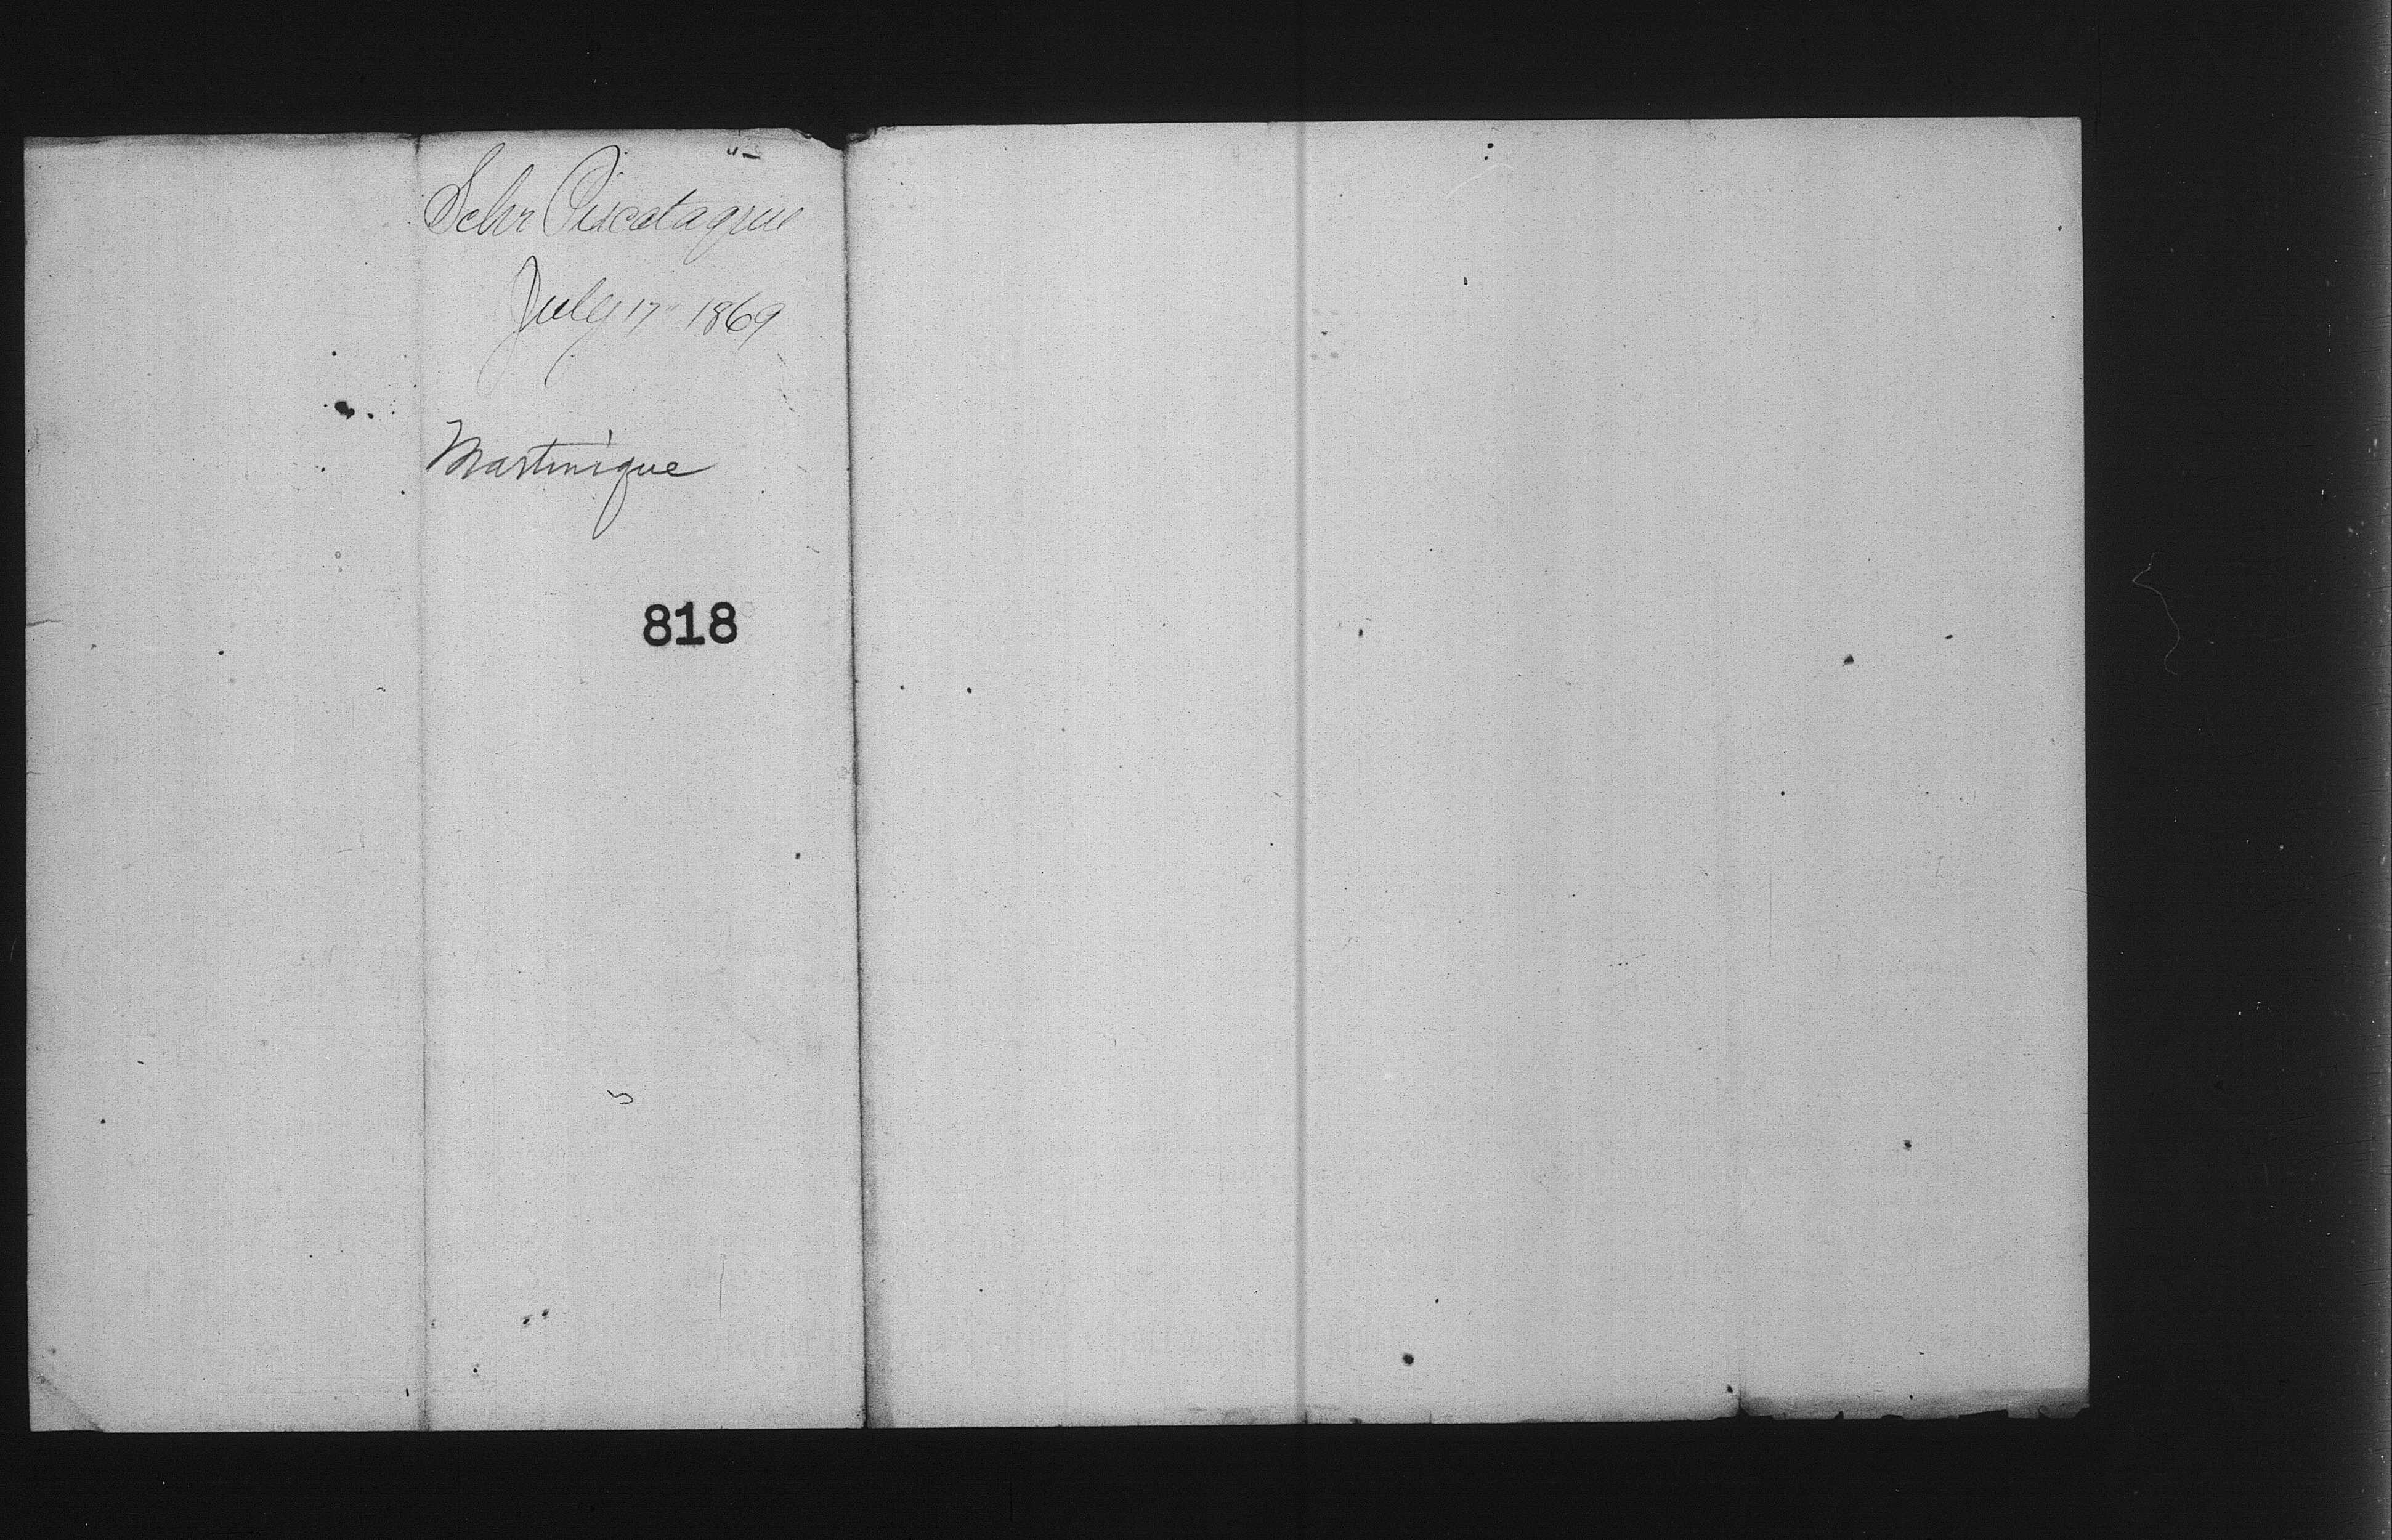 Schr Piscataqua
July 17" 1869
Martinique
818